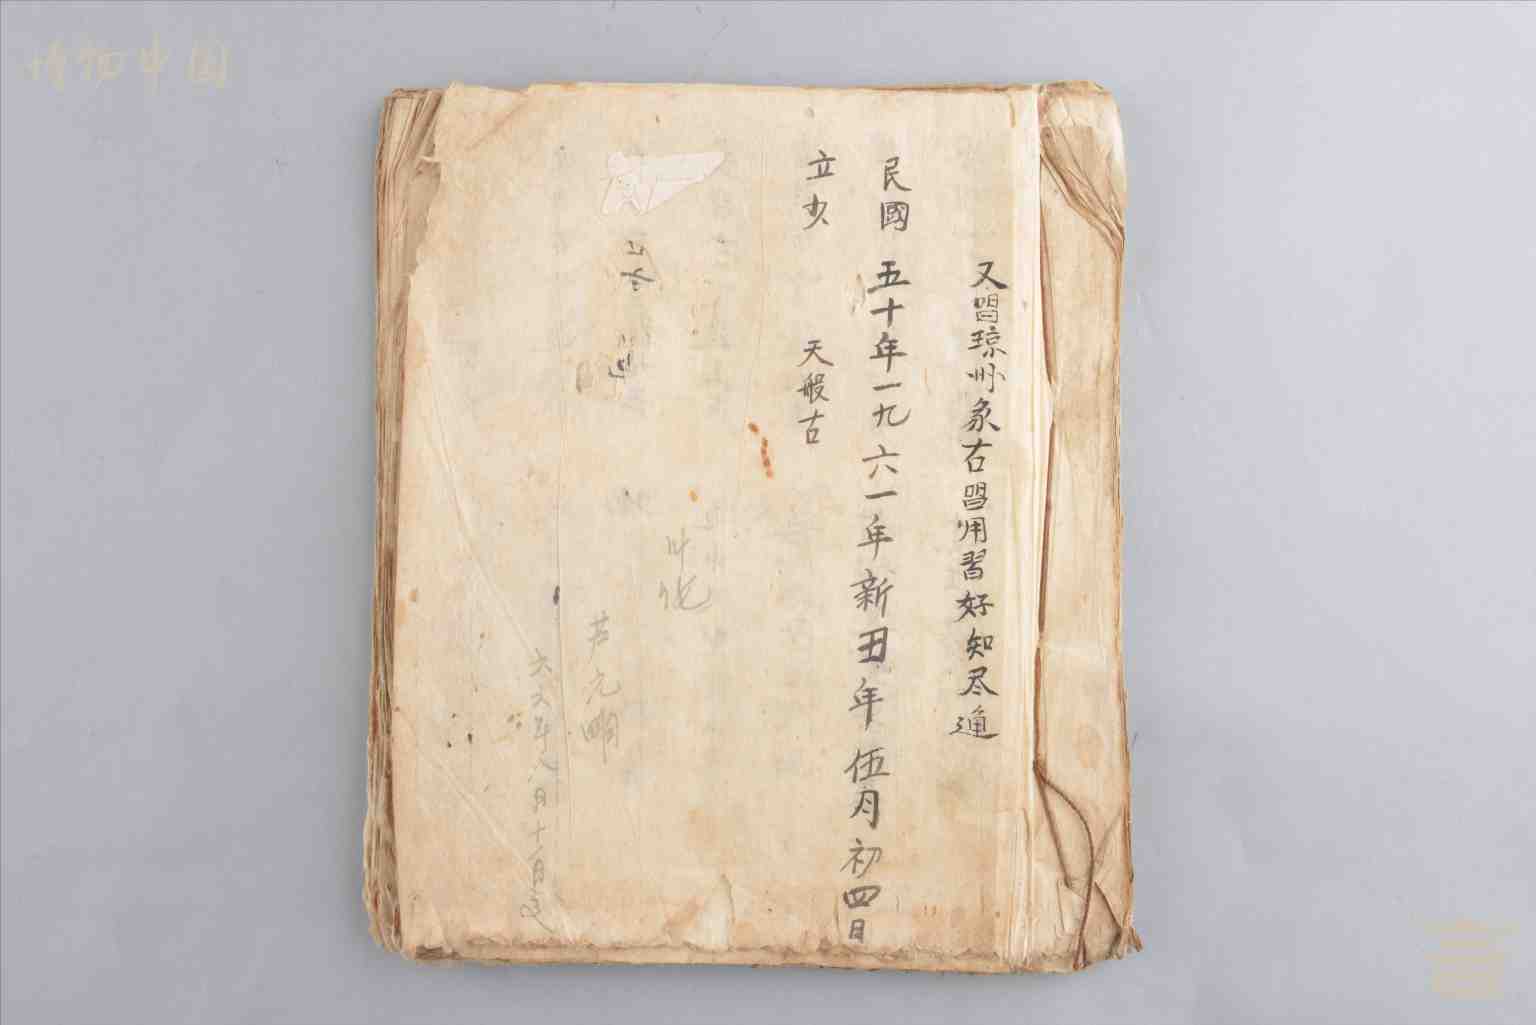 又習琼州象古習用習好知尽通
民國五十年一九六一年新丑年伍月初四日
立
天般古
芦元明
六六年八月十
博物中国